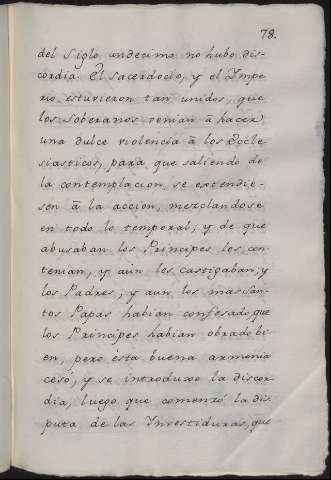 78.
del Siglo undecimo no hubo dis-
cordia. El sacerdocio, y el Ympe-
rio estuvieron tan unidos, que
los soberanos venian à hacer
una dulce violencia à los Ecle-
siasticos, para que saliendo de
la contemplacion se extendie-
sen à la acción, mezclandose
en todo lo temporal; y de que
abusaban los Príncipes los con-
tenian, y aun los castigaban; y
los Padres, y aun los mas San-
tos Papas habian confesado que
los Príncipes habian obrado bi-
en, pero ésta buena armonía
cesó, y se introduxo la discor-
dia, luego que comenzó la dis-
puta de las Ynvestiduras, que